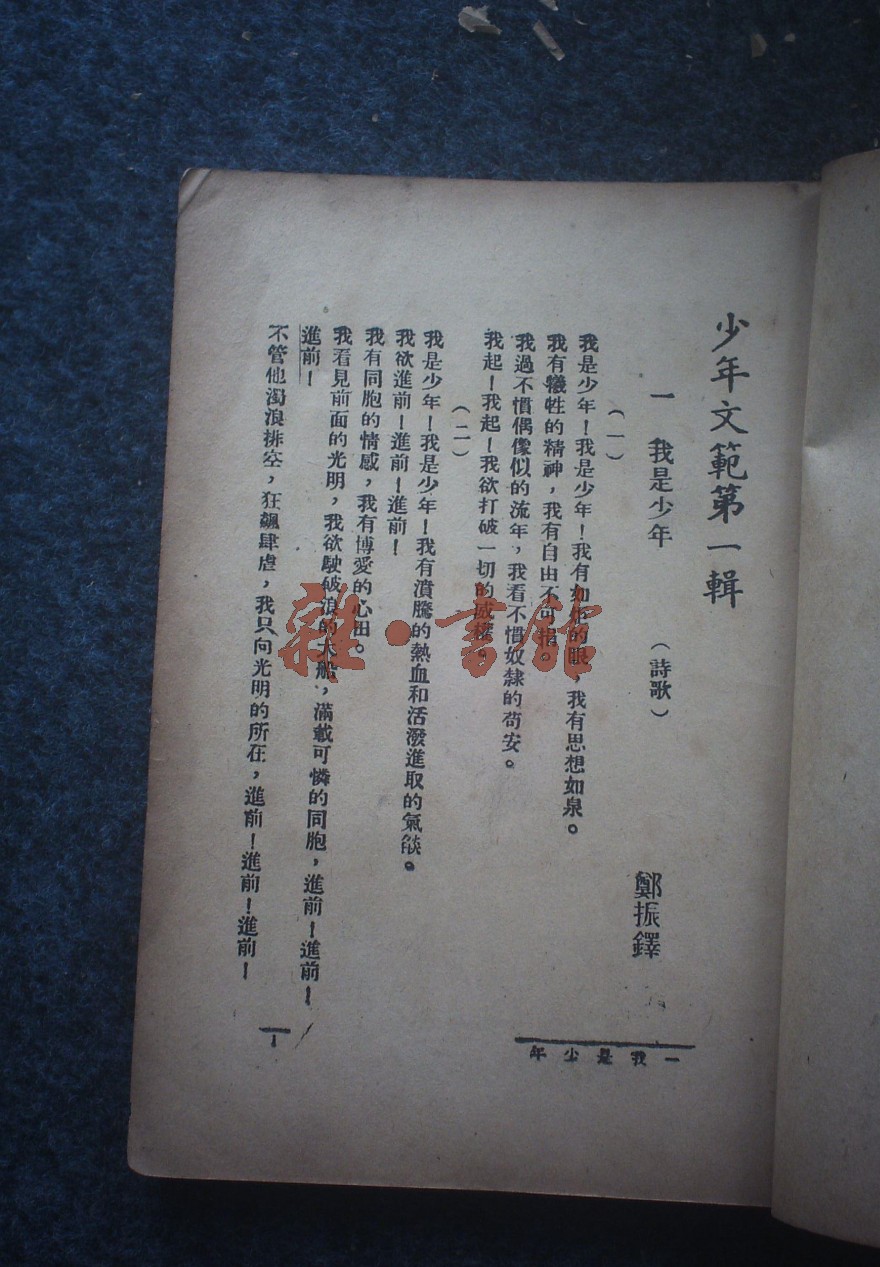 少年文範第一輯
一　我是少年　（詩歌）
鄭振鐸
（一）
我是少年！我是少年！我有如炬的眼，我有思想如泉。
我有犧牲的精神，我有自由不可捐。
我過不慣偶像似的流年，我看不慣奴隸的苟安。
我起！我起！我欲打破一切的威權。
（二）
我是少年！我是少年！我有濆騰的熱血和活潑進取的氣燄。
我欲進前！進前！進前！
我有同胞的情感，我有博愛的心田。
我看見前面的光明，我欲駛破浪的大船，滿載可憐的同胞，進前！進前！
進前！
不管他濁浪排空，狂飆肆虐，我只向光明的所在，進前！進前！進前！
一我是少年
1
雜·書館